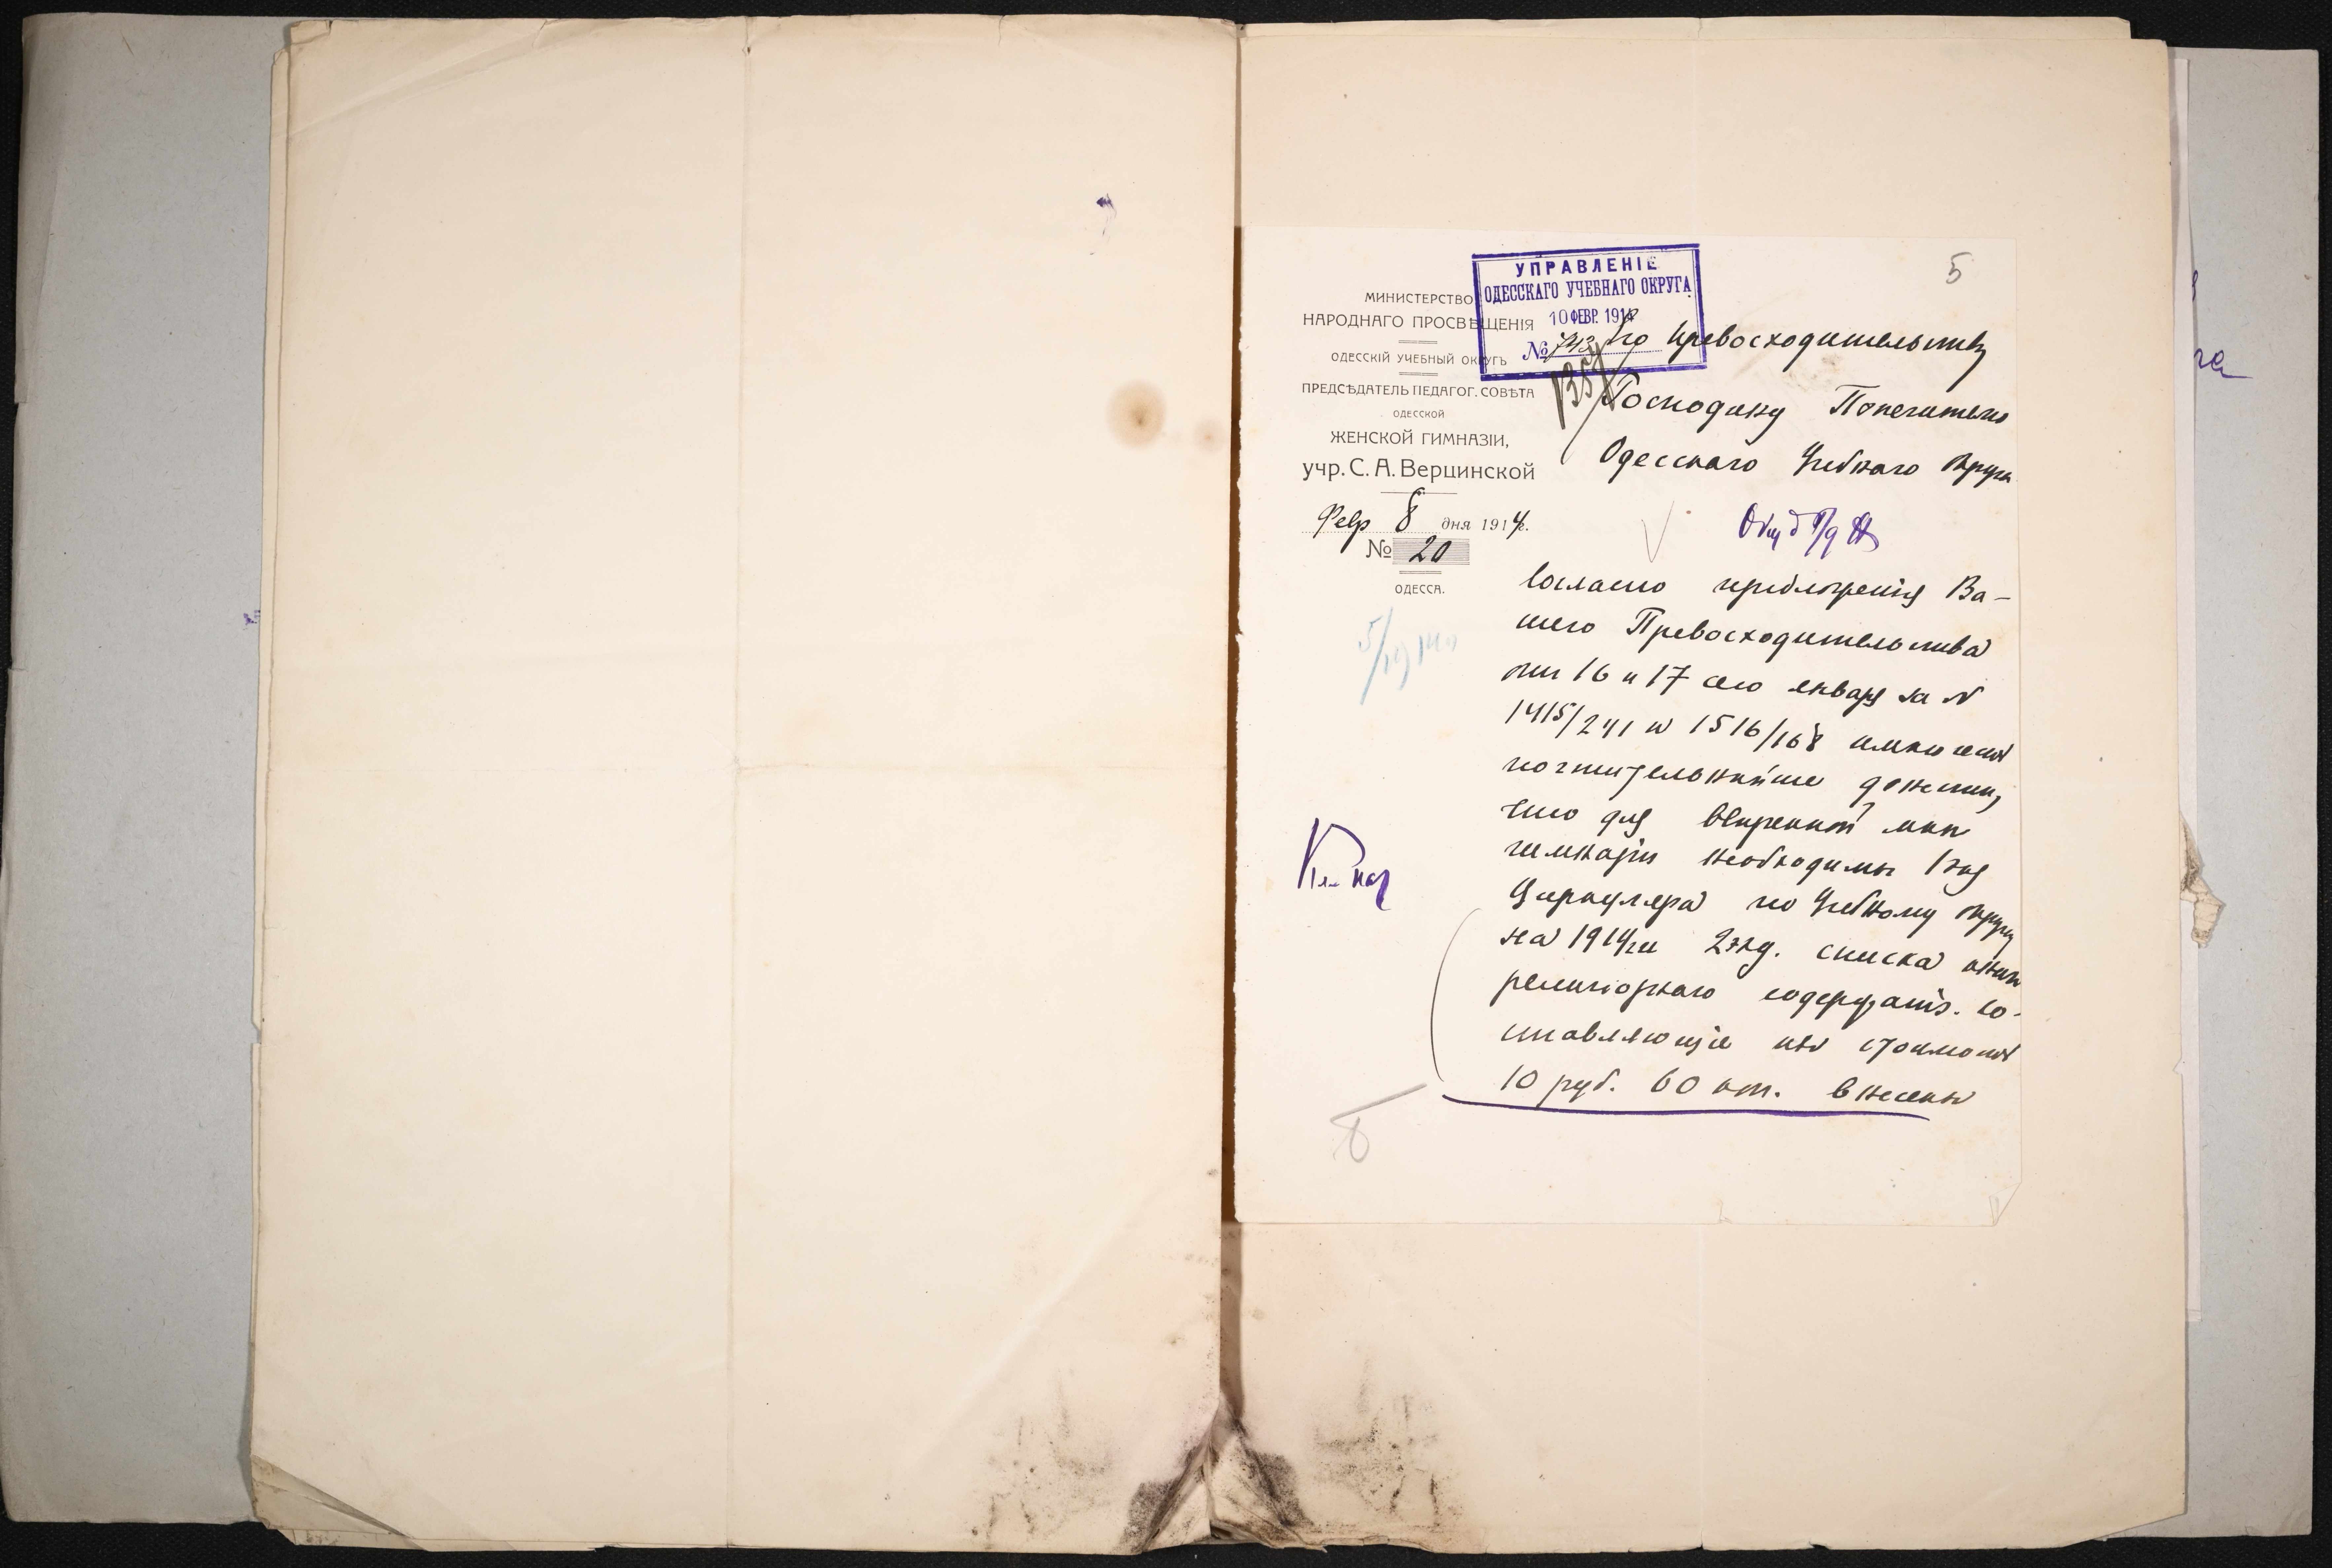 5
УПРАВЛЕНІЕ
ОДЕССКАГО УЧЕБНАГО ОКРУГА
10 ФЕВР. 1914
№ 743
1357
МИНИСТЕРСТВО
НАРОДНАГО ПРОСВѢЩЕНІЯ
ОДЕССКІЙ УЧЕБНЫЙ ОКРУГЪ
ПРЕДСѢДАТЕЛЬ ПЕДАГОГ. СОВѢТА
ОДЕССКОЙ
ЖЕНСКОЙ ГИМНАЗІИ,
учр. С. А. Верцинской
Февр 8 дня 1914 г.
№ 20
ОДЕССА.
Его Превосходительству
Господину Попечителю
Одесскаго Учебнаго Округа
Согласно предложенія Ва-
шего Превосходительства
отъ 16 и 17 сего января за N
1415/241 и 1516/168 имѣю честь
почтительнѣйше донести,
что для ввѣренной мнѣ
гимназіи необходимы 1 экз
Циркуляра по Учебному округу
на 1914 г и 2 экз. списка книгъ
религіознаго содержанія. Со-
ставляющіе ихъ стоимость
10 руб. 60 коп. внесены